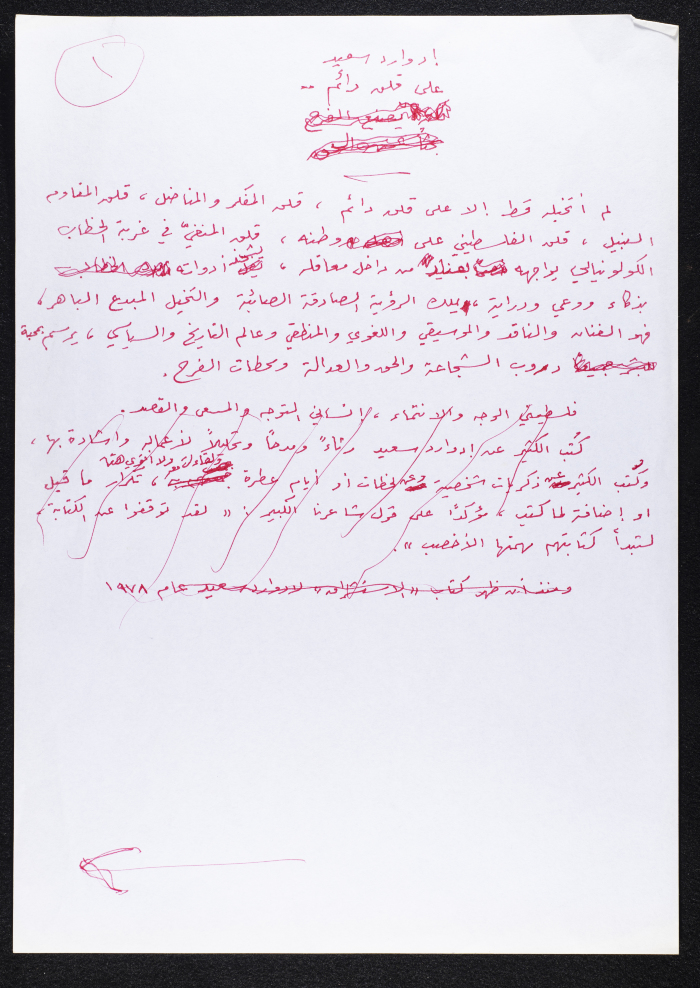 ١
إدوارد سعيد
على قلق دائم ..
لم أتخيله قط إلا على قلق دائم ، قلق المفكر والمناضل ، قلق المقاوم
النبيل ، قلق الفلسطيني على وطنه ، قلق المنفيّ في غربة الخطاب
الكولونيالي يواجهه بعناد من داخل معاقله ، يشحذ أدواته
بذكاء ووعي ودراية ، يملك الرؤية الصادقة الصائبة والتخيل المبدع الباهر ،
فهو الفنان والناقد والموسيقي واللغوي والمنطقي وعالم التاريخ والسياسي ، يرسم بمحبة
دروب الشجاعة والحق والعدالة ومحطات الفرح .
فلسطيني الوجه والانتماء ، إنساني التوجه والمسعى والقصد .
كُتب الكثير عن إدوارد سعيد رثاءً ومدحاً وتحليلاً لأعماله وإشادة بها ،
وكُتب الكثير عن ذكريات شخصية وعن لحظات أو أيام عطرة ولقاءات معه ولا أنوي هنا ، تكرار ما قيل
او إضافة لما كتب ، مؤكدًا على قول شاعرنا الكبير : " لقد توقفوا عن الكتابة ،
لتبدأ كتابتهم مهمتها الأخصب " .
ومنذ أن ظهر كتاب "الاستشراق" لإدوارد سعيد عام ١٩٧٨